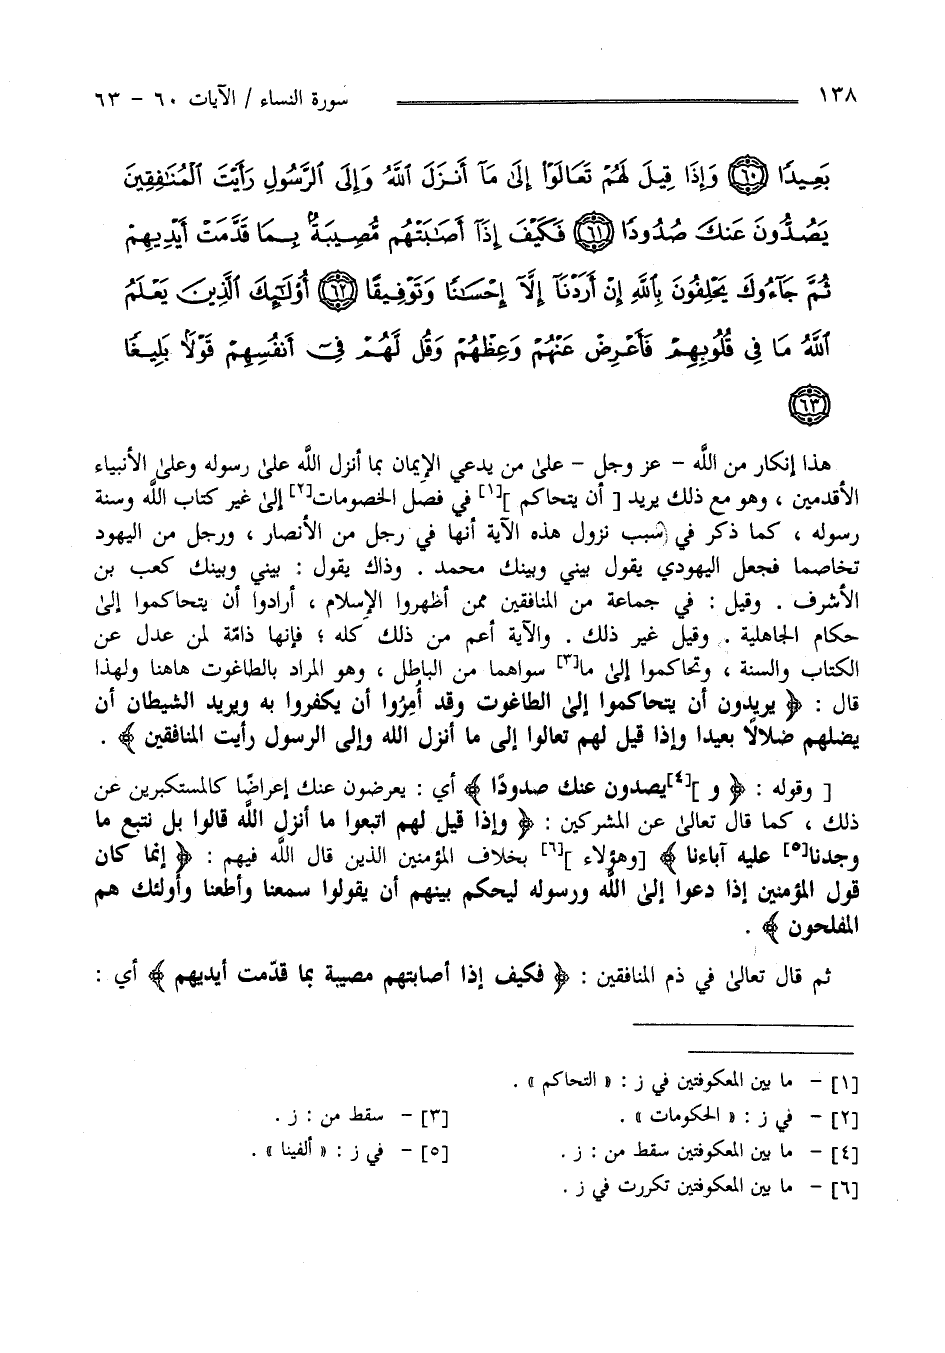 ١٣٨ سورة النساء / الآيات ٦٠ - ٦٣
بَعِيدًا ٦٠ وَإِذَا قِيلَ لَهُمْ تَعَالَوْا إِلَىٰ مَآ أَنزَلَ ٱللَّهُ وَإِلَى ٱلرَّسُولِ رَأَيْتَ ٱلْمُنَٰفِقِينَ
يَصُدُّونَ عَنكَ صُدُودًا ٦١ فَكَيْفَ إِذَآ أَصَٰبَتْهُم مُّصِيبَةٌۢ بِمَا قَدَّمَتْ أَيْدِيهِمْ
ثُمَّ جَآءُوكَ يَحْلِفُونَ بِٱللَّهِ إِنْ أَرَدْنَآ إِلَّآ إِحْسَٰنًا وَتَوْفِيقًا ٦٢ أُو۟لَٰٓئِكَ ٱلَّذِينَ يَعْلَمُ
ٱللَّهُ مَا فِى قُلُوبِهِمْ فَأَعْرِضْ عَنْهُمْ وَعِظْهُمْ وَقُل لَّهُمْ فِىٓ أَنفُسِهِمْ قَوْلًۢا بَلِيغًا
٦٣
هذا إنكار من اللَّه - عز وجل - علىٰ من يدعي الإيمان بما أنزل اللَّه علىٰ رسوله وعلىٰ الأنبياء
الأقدمين ، وهو مع ذلك يريد [ أن يتحاكم ][١] في فصل الخصومات[٢] إلىٰ غير كتاب اللَّه وسنة
رسوله ، كما ذكر في سبب نزول هذه الآية أنها في رجل من الأنصار ، ورجل من اليهود
تخاصما فجعل اليهودي يقول بيني وبينك محمد . وذاك يقول : بيني وبينك كعب بن
الأشرف . وقيل : في جماعة من المنافقين ممن أظهروا الإسلام ، أرادوا أن يتحاكموا إلىٰ
حكام الجاهلية . وقيل غير ذلك . والآية أعم من ذلك كله ؛ فإنها ذامّة لمن عدل عن
الكتاب والسنة ، وتحاكموا إلىٰ ما[٣] سواهما من الباطل ، وهو المراد بالطاغوت هاهنا ولهذا
قال : ﴿ يريدون أن يتحاكموا إلىٰ الطاغوت وقد أُمِرُوا أن يكفروا به ويريد الشيطان أن
يضلهم ضلالًا بعيدا وإذا قيل لهم تعالوا إلى ما أنزل الله وإلى الرسول رأيت المنافقين ﴾ .
[ وقوله : ﴿ و ][٤]يصدون عنك صدودًا ﴾ أي : يعرضون عنك إعراضًا كالمستكبرين عن
ذلك ، كما قال تعالىٰ عن المشركين : ﴿ وإذا قيل لهم اتبعوا ما أنزل اللَّه قالوا بل نتبع ما
وجدنا[٥] عليه آباءنا ﴾ [وهؤلاء ][٦] بخلاف المؤمنين الذين قال اللَّه فيهم : ﴿ إنما كان
قول المؤمنين إذا دعوا إلىٰ اللَّه ورسوله ليحكم بينهم أن يقولوا سمعنا وأطعنا وأولئك هم
المفلحون ﴾ .
ثم قال تعالىٰ في ذم المنافقين : ﴿ فكيف إذا أصابتهم مصيبة بما قدّمت أيديهم ﴾ أي :
[١] - ما بين المعكوفتين في ز : « التحاكم » .
[٢] - في ز : « الحكومات » . [٣] - سقط من : ز .
[٤] - ما بين المعكوفتين سقط من : ز . [٥] - في ز : « ألفينا » .
[٦] - ما بين المعكوفتين تكررت في ز .